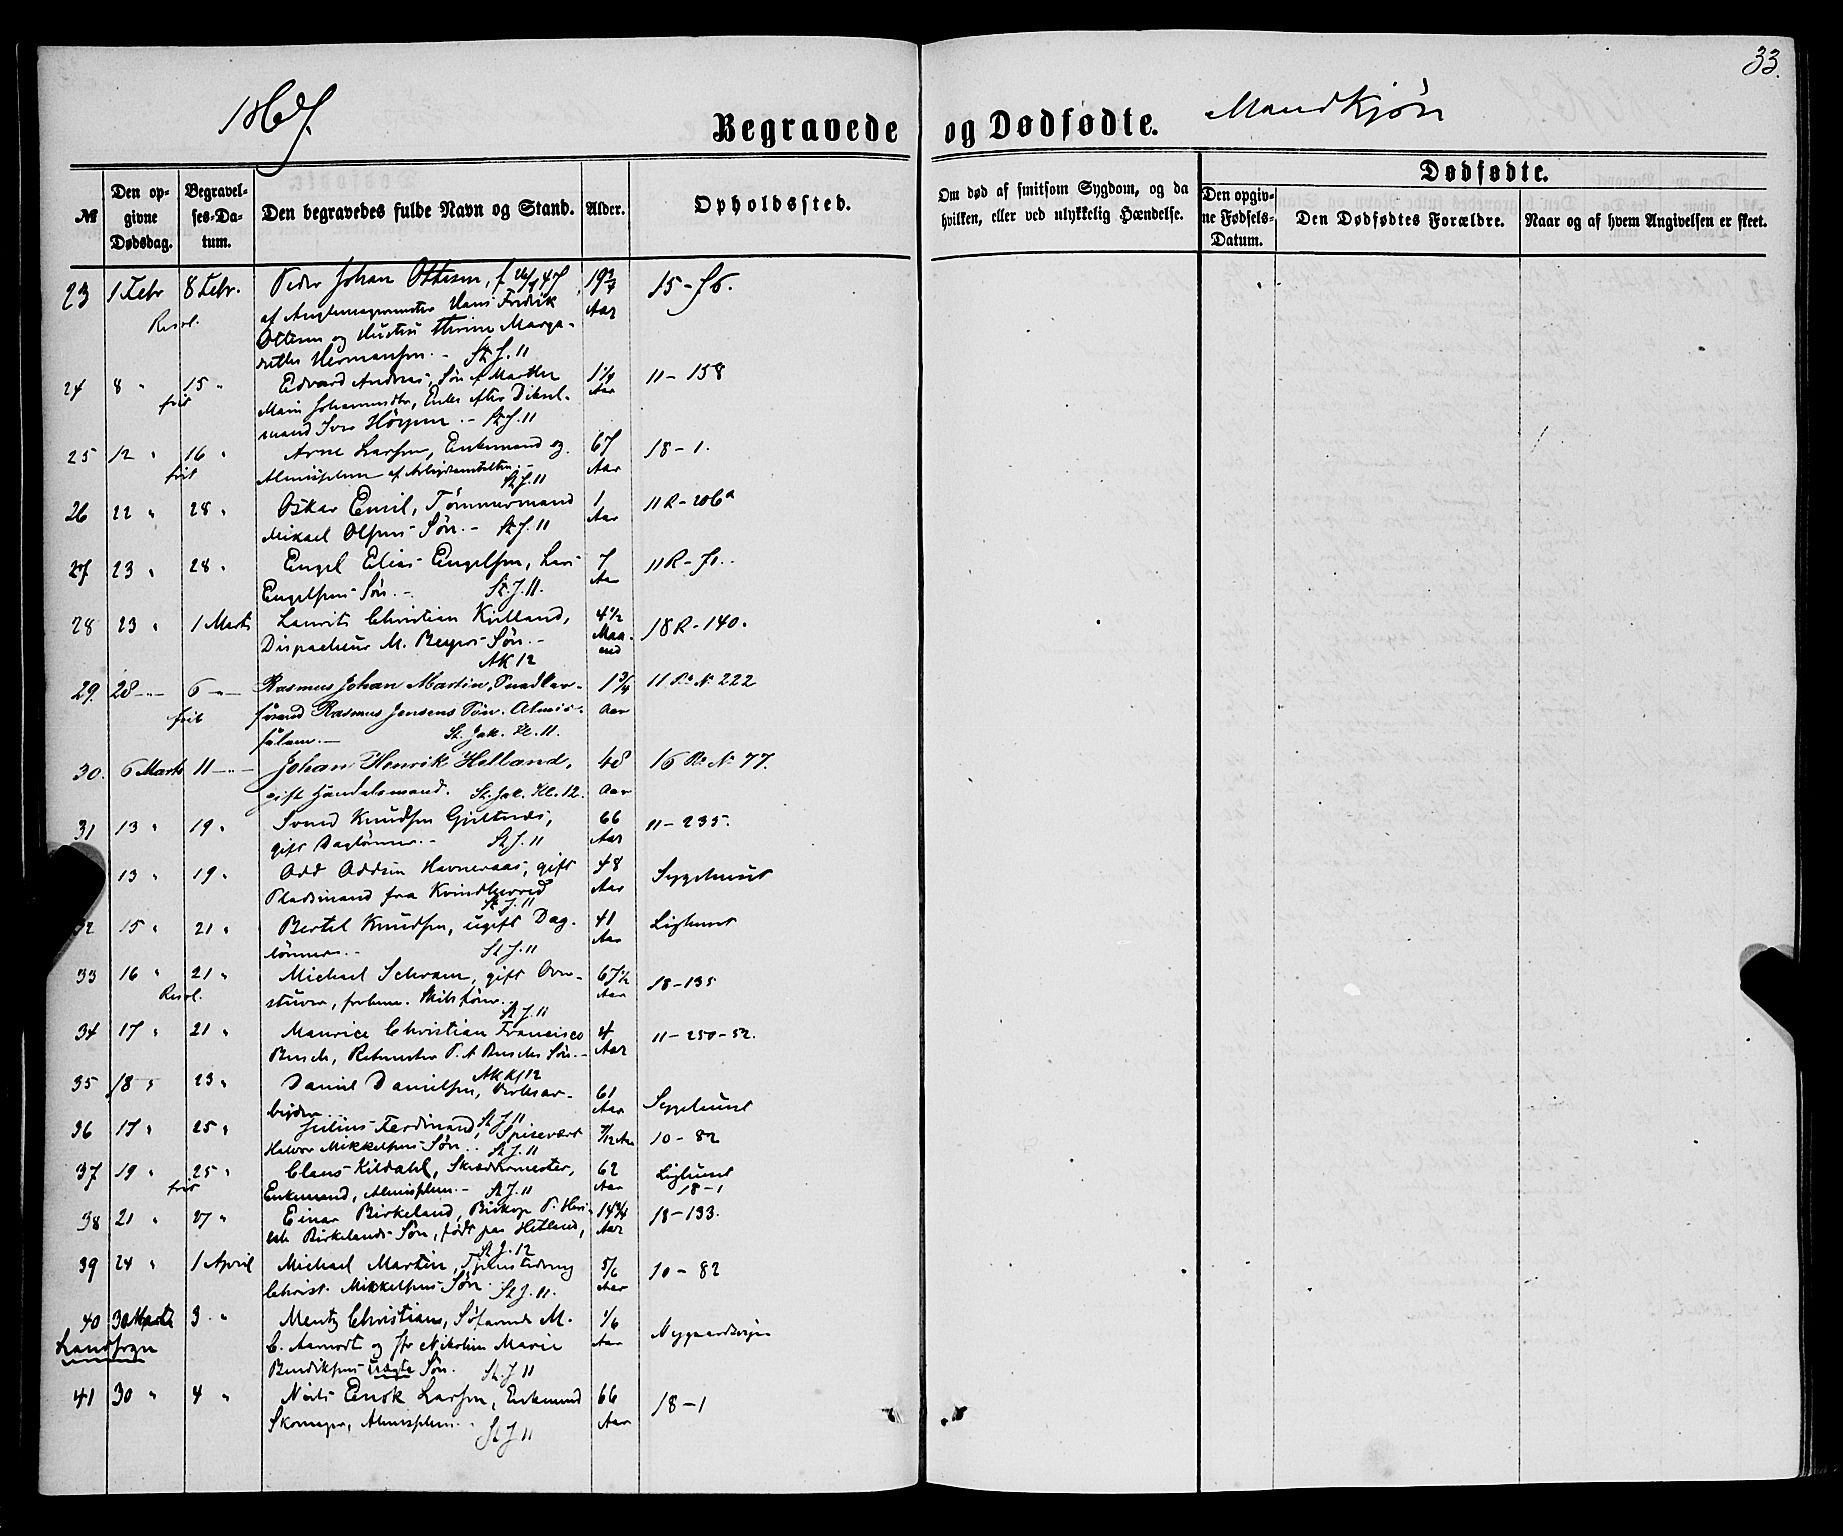 33.
1867.
Begravede og Dødfødte.
Mandkjøn
№
Den opgivne Dødsdag.
Begravelses-Datum.
Den begravedes fulde Navn og Stand.
Alder.
Opholdssted.
Om død af smitsom Sygdom, og da hvilken, eller ved ulykkelig Hændelse.
Dødfødte.
Den opgivne Fødsels-Datum.
Den Dødfødtes Forældre.
Naar og af hvem Angivelsen er skeet.
23 1 Febr 8 Febr. Peder Johan Ottesen, f. 47 19 15-76.
af Hans Fredrik Aar
Ottesen og Hustru Marga-
rethe Hermansen.- St. J. 11
24 8 " 15 " Edvard Andreas, Søn af Marthe 1 1/4 11-158
frit Marie Enke efter Aar
mand Iver - St. J. 11
25 12 " 16 " Arne Larsen, Enkemand og 67 18-1.
frit Almisselem af Arbeidsanstalten.- Aar
St. J. 11
26 22 " 28 " Oskar Emil, Tømmermand 1 11 R-206a
Mikael Olsens Søn.- St. J. 11 Aar
27 23 " 28 " Engel Elias Engelsen, Lars 7 11 R-71..
Engelsens Søn.- St. J. 11. Aar
28 23 " 1 Marts Laurits Christian Kielland, 4 1/2 18 R-140.
Dispacheur M. Beyers Søn.- Maa-
AK 12 ned
29. 28-"- 6-"- Rasmus Johan Martin, 1 3/4 11 Rd. № 222
frit Rasmus Jensens Søn. Almis- Aar
selem.- St. Jak. Kl. 11.
30. 6 Marts 11-"- Johan Henrik Helland, 48 16 Rd. № 77.
gift Handelsmand. St. Jak. Kl. 12. Aar
31 13 " 19 " Svend Knudsen 66 11-235.
gift Daglønner.- St. J. 11 Aar
13 " 19 " Odd Oddsen Havneraas, gift 48 Sygehuset
Pladsmand fra Kvindherred Aar
St. J. 11
32 15 " 21 " Bertel Knudsen, ugift Dag- 41 Lighuset
lønner.- St. J. 11 Aar
33 16 " 21 " Michael Schram, gift 67 1/2 18-135
Resol. Aar
St. J. 11
34 17 " 21 " Maurice Christian Francisco 4 11-250-52.
Busch, P. A Busches Søn.- Aar
AK Kl 12
35 18 " 23 " Daniel Danielsen, 61 Sygehuset
beider St J 11 Aar
36 17 " 25 " Julius Ferdinand, Spisevært 7/12 Aar 10-82
Halvor Mikkelsens Søn.. St. J. 11
37 19 " 25 " Claus Kildahl, Skrædermester, 62 Lighuset
frit Enkemand, Almisselem.- St J. 11 Aar 18-1
38 21 " 27 " Einar Birkeland, Biskop P. Her- 14 3/4 18-133.
Birkelands Søn, født paa Hetland, Aar
St J. 12
39 24 " 1 April Michael Martin, 5/6 10-82
Christ. Mikkelsens Søn St J. 11. Aar
40 30 Marts 3 " Mentz Christian, Søfarende M. 1/6 Nygaardsveien
Landsogn C. Aarnodt og Nikoline Marie Aar
Bendiksens uægte Søn. St. J 11
41 30 " 4 " Niels Enok Larsen, Enkemand 66 18-1
Skomager, Almisselem.. Aar
St J 11